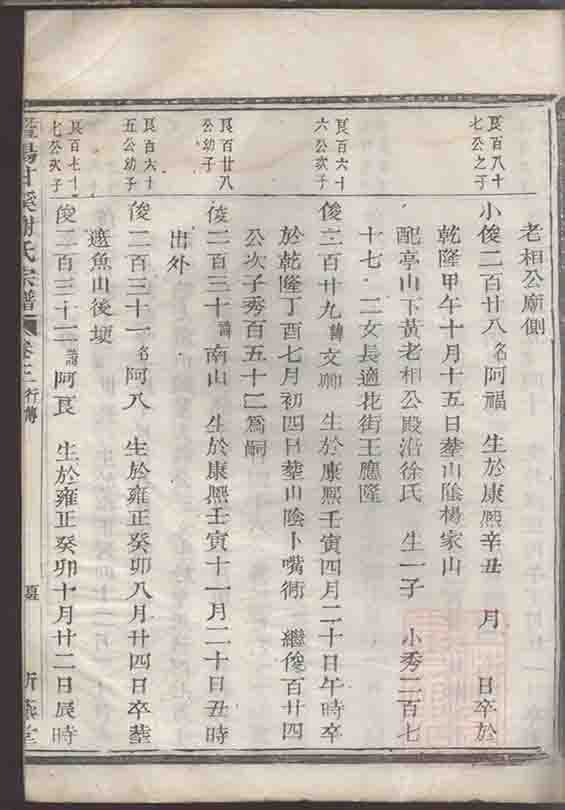 老相公廟側
良百八十七公之子
小俊二百廿八名阿福 生於康熙辛丑 月 日卒於
乾隆甲午十月十五日塟山陰楊家山
配亭山下黃老相公殿沿徐氏 生一子 小秀二百七
十七 二女長適北街王應隆
良百六十六公次子
俊二百廿九諱文卿 生於康熙壬寅四月二十日午時卒
於乾隆丁酉七月初四日塟山陰卜嘴衕 繼俊百廿四
公次子秀百五十二爲嗣
良百廿八公幼子
俊二百三十諱南山 生於康熙壬寅十一月二十日丑時
出外
良百六十五公幼子
俊二百三十一名阿八 生於雍正癸卯八月廿四日卒塟
遮魚山後埂
良百七十七公次子
俊二百三十二諱阿良 生於雍正癸卯十月廿二日辰時
暨陽甘溪謝氏宗譜 卷三 行傳